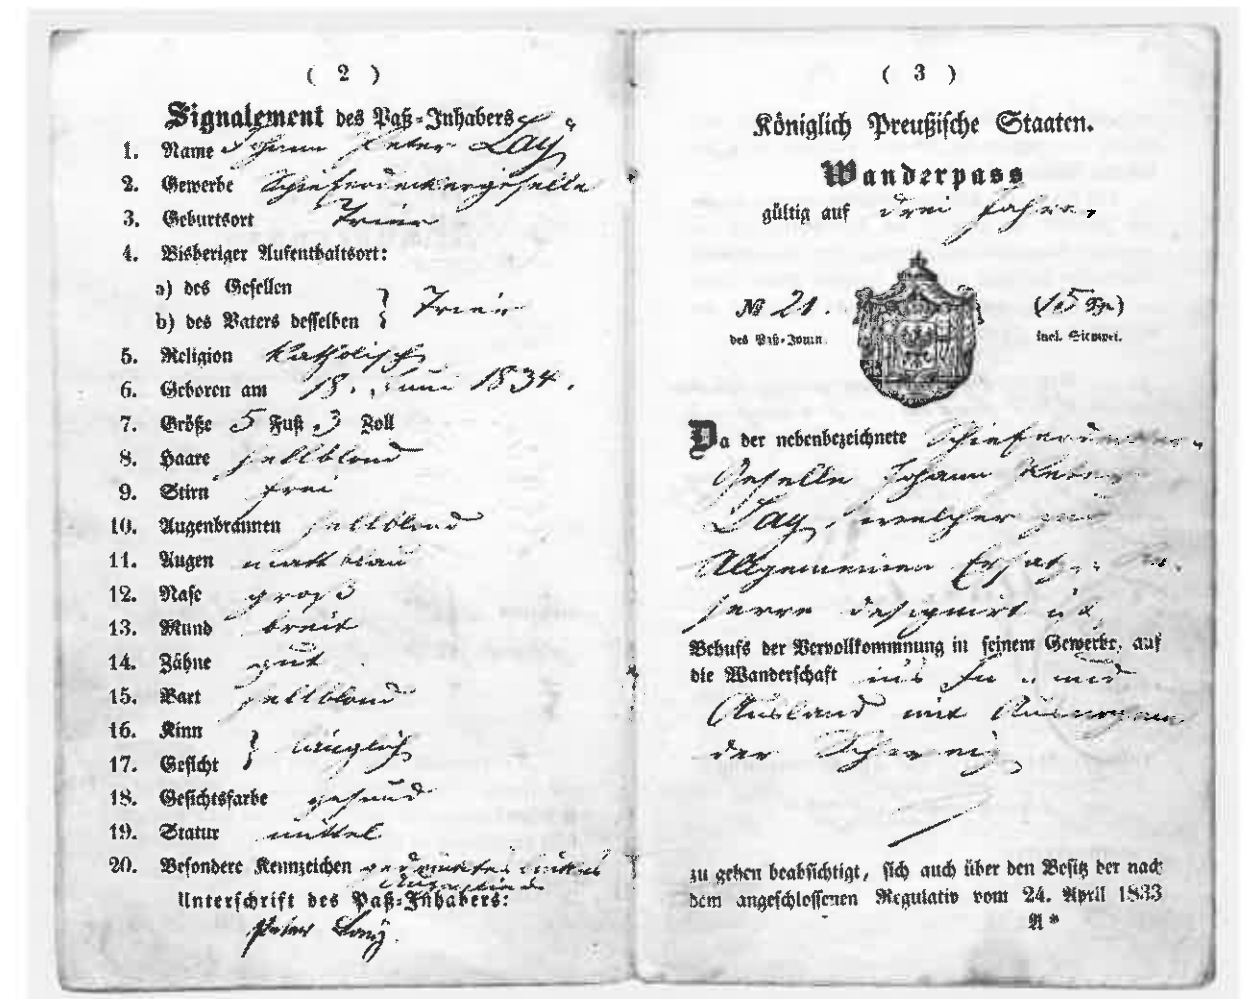 ( 2 )
Signalement des Paß-Inhabers
1. Name Johann Peter Lay
2. Gewerbe Schieferdeckergeselle
3. Geburtsort Trier
4. Bisheriger Aufenthaltsort:
a) des Gesellen
b) des Vaters desselben } Trier
5. Religion katholisch
6. Geboren am 18. Juni 1834.
7. Größe 5 Fuß 3 Zoll
8. Haare hellblond
9. Stirn frei
10. Augenbraunen hellblond
11. Augen matt blau
12. Nase groß
13. Mund breit
14. Zähne gut
15. Bart hellblond
16. Kinn
17. Gesicht } länglich
18. Gesichtsfarbe gesund
19. Statur mittel
20. Besondere Kennzeichen
Unterschrift des Paß-Inhabers:
Peter Lay
( 3 )
Königlich Preußische Staaten.
Wanderpass
gültig auf drei Jahre,
№ 21. (15 Sgr)
des Paß-Journ. incl. Stempel.
Da der nebenbezeichnete Schieferdecker-
Geselle Johann Peter
Lay, welcher zur
Allgemeinen Ersatz-Re-
serve designirt ist
Behufs der Vervollkommnung in seinem Gewerbe, auf
die Wanderschaft ins In- und
Ausland mit Ausnahme
der Schweiz
zu gehen beabsichtigt, sich auch über den Besitz der nach
dem angeschlossenen Regulativ vom 24. April 1833
A*